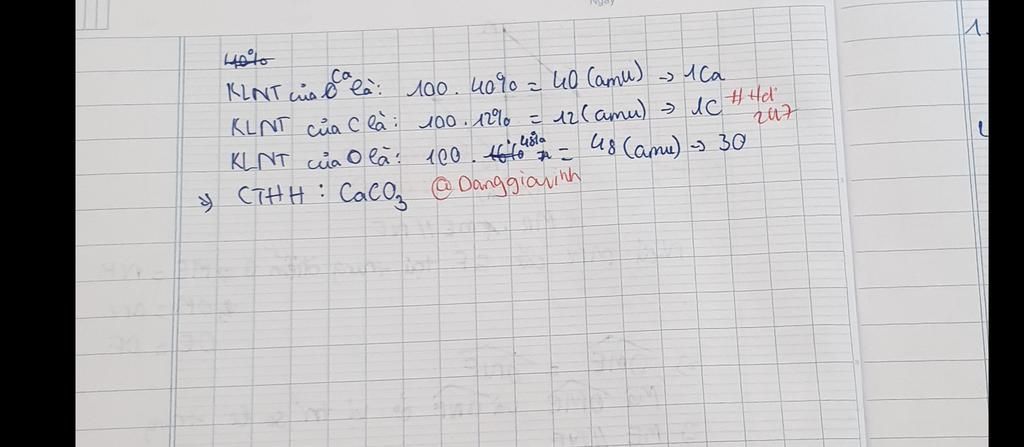 40%
KLNT của Ca là: 100 . 40% = 40 (amu) → 1Ca
KLNT của C là: 100 . 12% = 12 (amu) → 1C #Hd 247
KLNT của O là: 100 . 48% = 48 (amu) → 3O
=> CTHH : CaCO₃ @Danggiavinh
1.